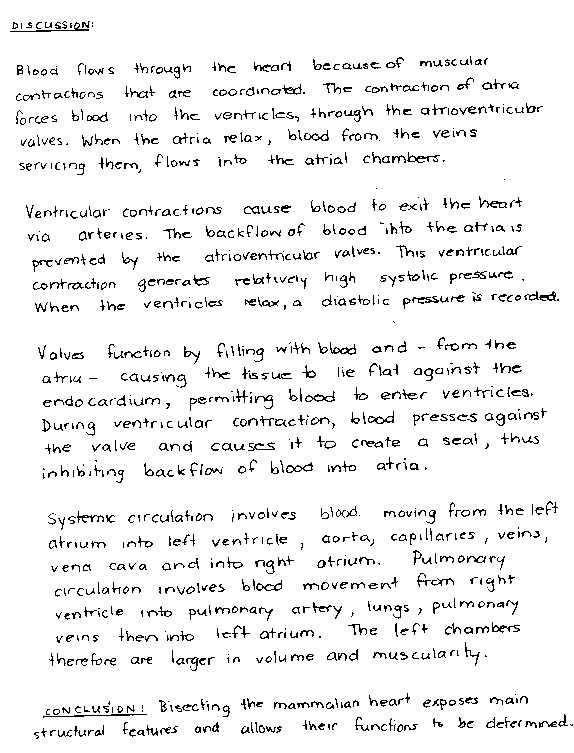 DISCUSSION:
Blood flows through the heart because of muscular
contractions that are coordinated. The contraction of atria
forces blood into the ventricles, through the atrioventricular
valves. When the atria relax, blood from the veins
servicing them, flows into the atrial chambers.
Ventricular contractions cause blood to exit the heart
via arteries. The backflow of blood into the atria is
prevented by the atrioventricular valves. This ventricular
contraction generates relatively high systolic pressure.
When the ventricles relax, a diastolic pressure is recorded.
Valves function by filling with blood and - from the
atria - causing the tissue to lie flat against the
endocardium, permitting blood to enter ventricles.
During ventricular contraction, blood presses against
the valve and causes it to create a seal, thus
inhibiting backflow of blood into atria.
Systemic circulation involves blood moving from the left
atrium into left ventricle, aorta, capillaries, veins,
vena cava and into right atrium. Pulmonary
circulation involves blood movement from right
ventricle into pulmonary artery, lungs, pulmonary
veins then into left atrium. The left chambers
therefore are larger in volume and muscularity.
CONCLUSION: Bisecting the mammalian heart exposes main
structural features and allows their functions to be determined.